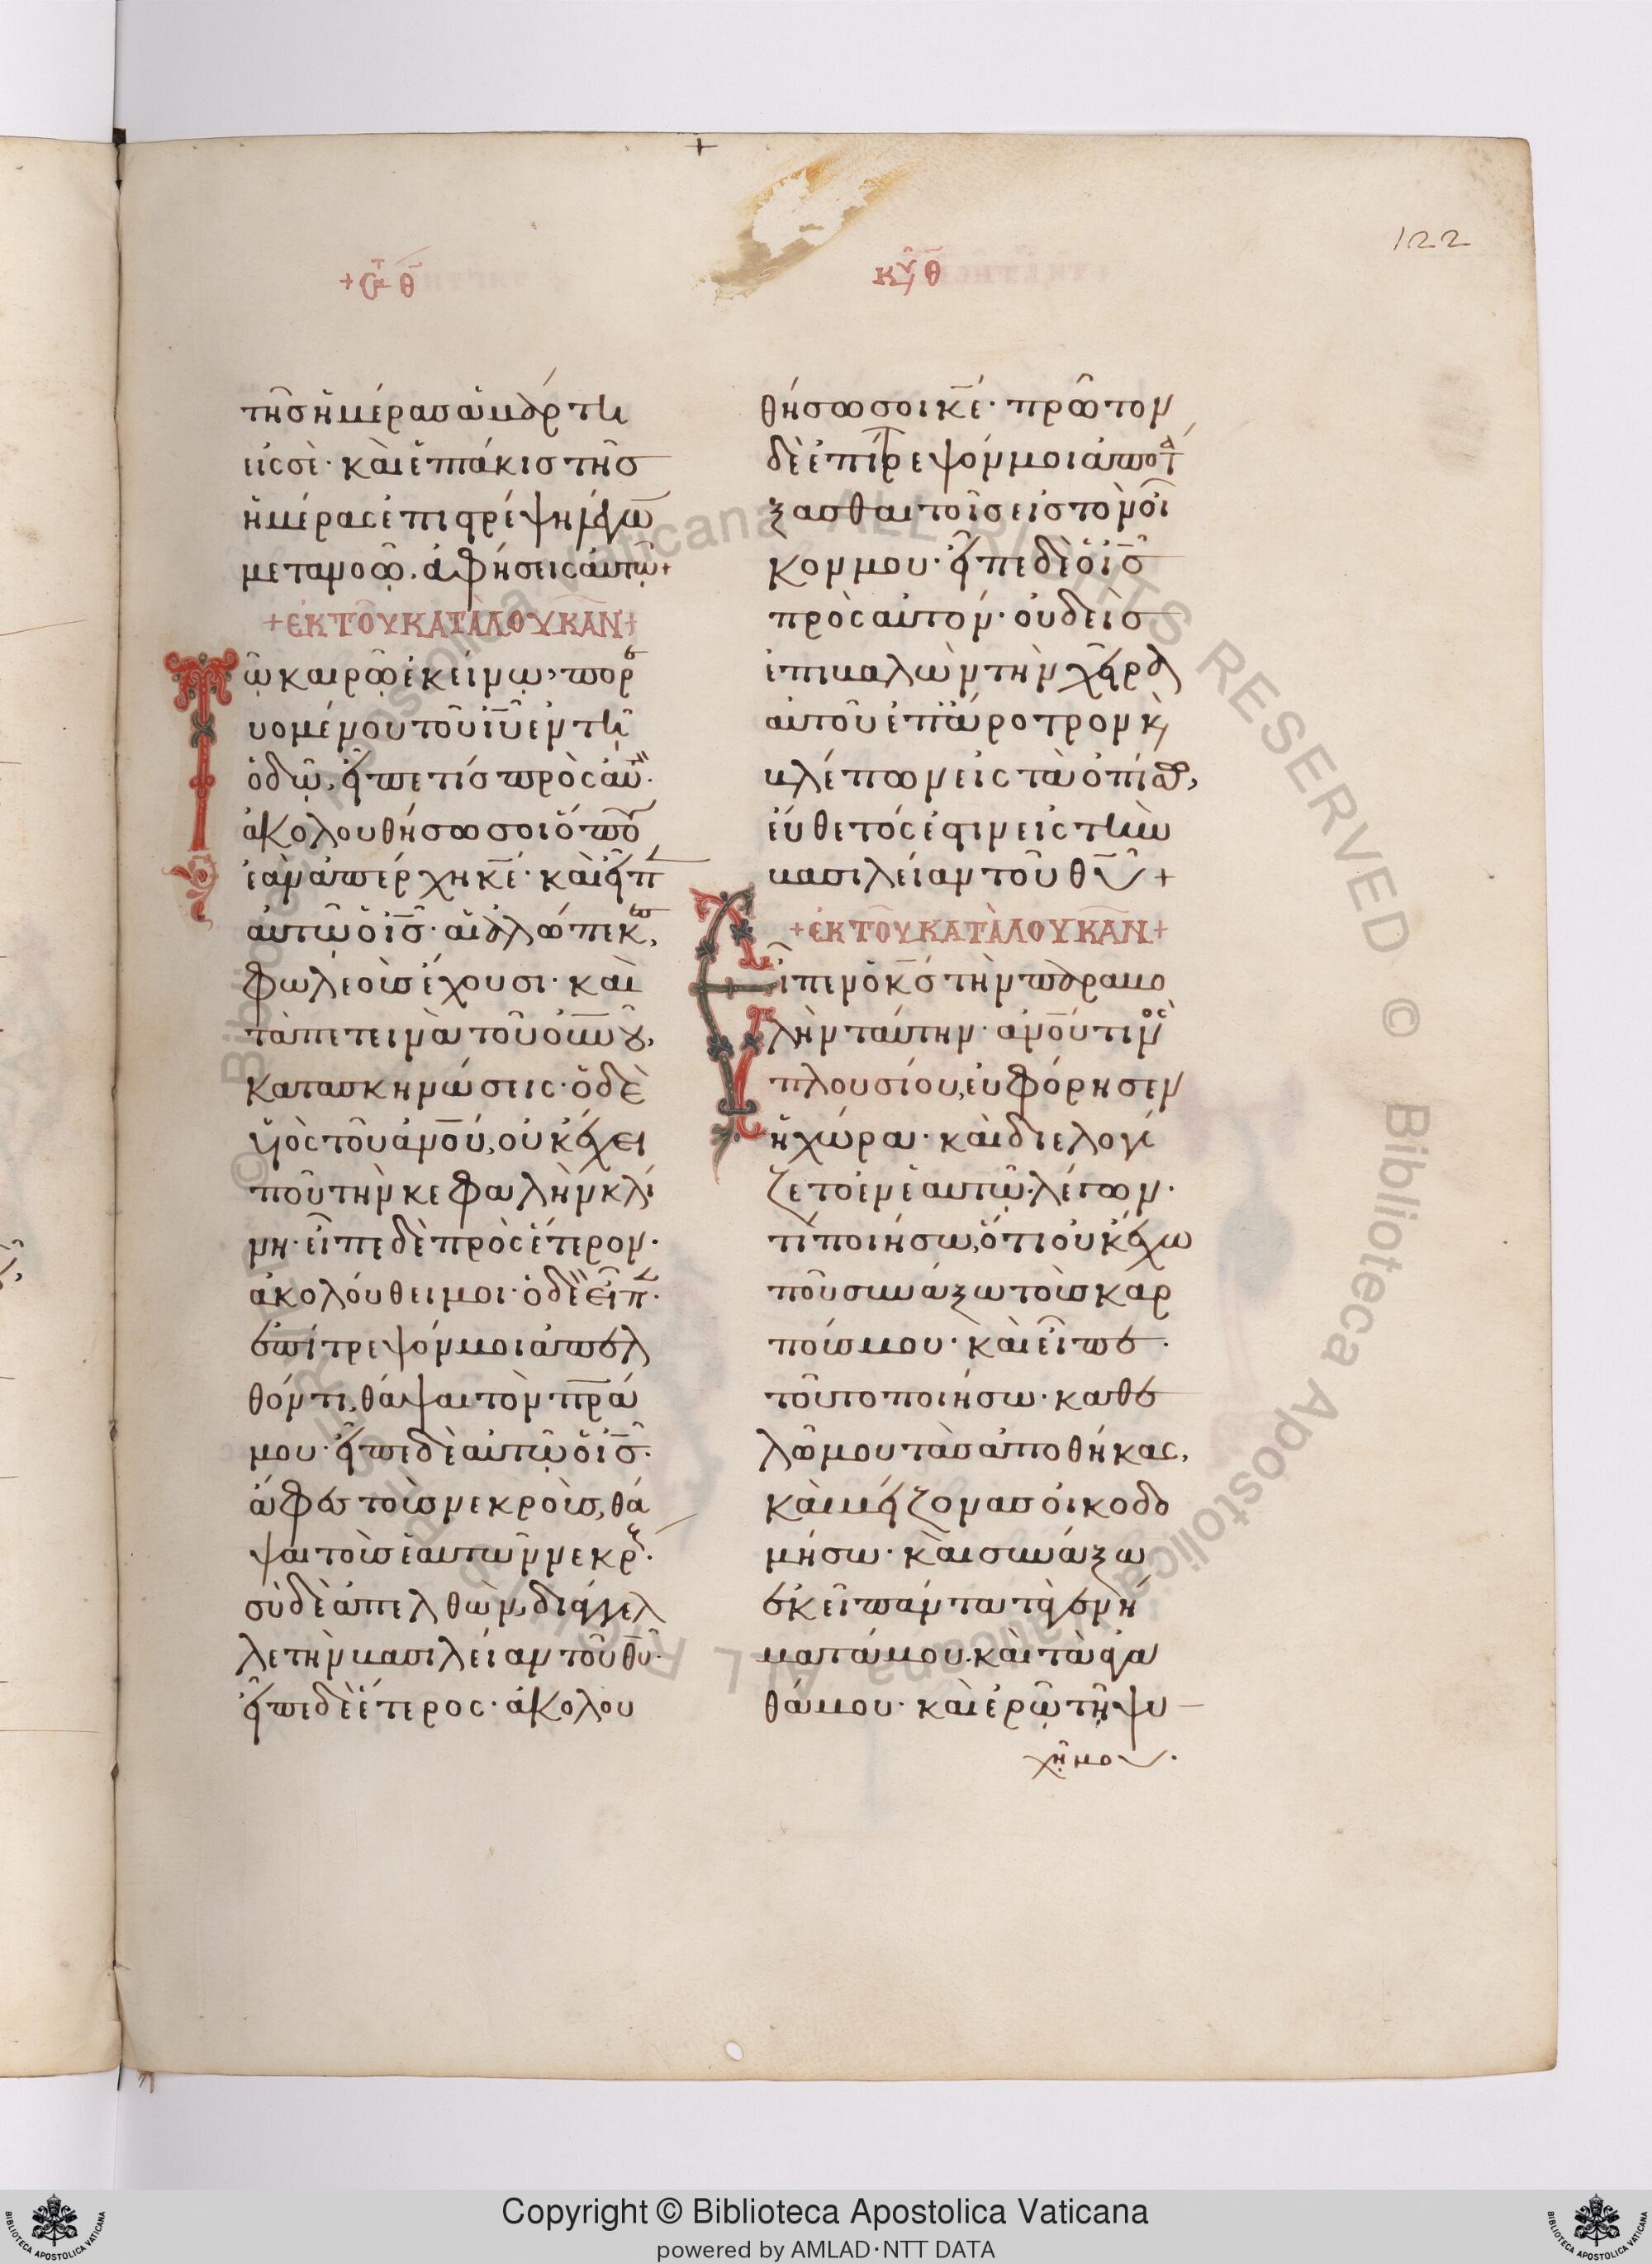 122
+ Σα θ
τῆς ἡμέρας ἁμάρτη
εἰς σὲ· καὶ ἑπτάκις τῆς
ἡμέρας ἐπιστρέψη λέγω̅
μετανοῶ. ἀφήσεις αὐτῶ+
+ΕΚ ΤΟΥ ΚΑΤΑ ΛΟΥΚΑΝ+
Τῶ καιρῶ ἐκείνω, πορε
υομένου τοῦ ἰ̅υ̅ ἐν τῆ
ὁδῶ, εἶπέ τις πρὸς αὐτ·
ἀκολουθήσω σοι ὅπου
ἐὰν ἀπέρχη κ̅ε̅· καὶ εἶπ
αὐτῶ ὁ ἰ̅ς̅· αἱ ἀλώπεκες,
φωλεοὺς ἔχουσι· καὶ
τὰ πετεινὰ τοῦ ο̅υ̅νου,
κατασκηνώσεις· ὁ δὲ
υἱὸς τοῦ α̅ν̅ο̅υ̅, οὐκ ἔχει
ποῦ τὴν κεφαλὴν κλί
νη· εἶπε δὲ πρὸς ἕτερον·
ἀκολούθει μοι· ὁ δὲ εἶπ·
ἐπίτρεψόν μοι ἀπελ
θόντι, θάψαι τὸν π̅ρ̅α̅
μου· εἶπε δὲ αὐτῶ ὁ ἰ̅ς̅·
ἄφες τοὺς νεκροὺς, θά
ψαι τοὺς ἑαυτῶν νεκρ·
σὺ δὲ ἀπελθὼν, διάγγελ
λε τὴν βασιλείαν τοῦ θ̅υ̅·
εἶπε δὲ ἕτερος· ἀκολου
Κυ θ
θήσω σοι κ̅ε̅· πρῶτον
δὲ ἐπίτρεψόν μοι ἀποτά
ξασθαι τοῖς εἰς τὸν οἶ
κον μου· εἶπε δὲ ὁ ἰ̅ς̅
πρὸς αὐτόν· οὐδεὶς
ἐπιβαλὼν τὴν χεῖρα
αὐτοῦ ἐπ' ἄροτρον κ̀
βλέπων εἰς τὰ ὀπίσω,
εὔθετός ἐστιν εἰς τὴν
βασιλείαν τοῦ θ̅υ̅+
+ΕΚ ΤΟΥ ΚΑΤΑ ΛΟΥΚΑΝ+
Εἶπεν ὁ κ̅ς̅ τὴν παραβο
λὴν ταύτην· α̅ν̅ο̅υ̅ τινὸς
πλουσίου, εὐφόρησεν
ἡ χώρα· καὶ διελογί
ζετο ἐν ἑαυτῶ· λέγων·
τί ποιήσω, ὅτι οὐκ ἔχω
ποῦ συνάξω τοὺς καρ
πούς μου· καὶ εἶπε·
τοῦτο ποιήσω· καθε
λῶ μου τὰς ἀποθήκας,
καὶ μείζονας οἰκοδο
μήσω· καὶ συνάξω
ἐκεῖ πάντα τὰ γενή
ματά μου· καὶ τὰ ἀγα
θά μου· καὶ ἐρῶ τῆ ψυ
χῆ μου·
Copyright © Biblioteca Apostolica Vaticana
powered by AMLAD·NTT DATA